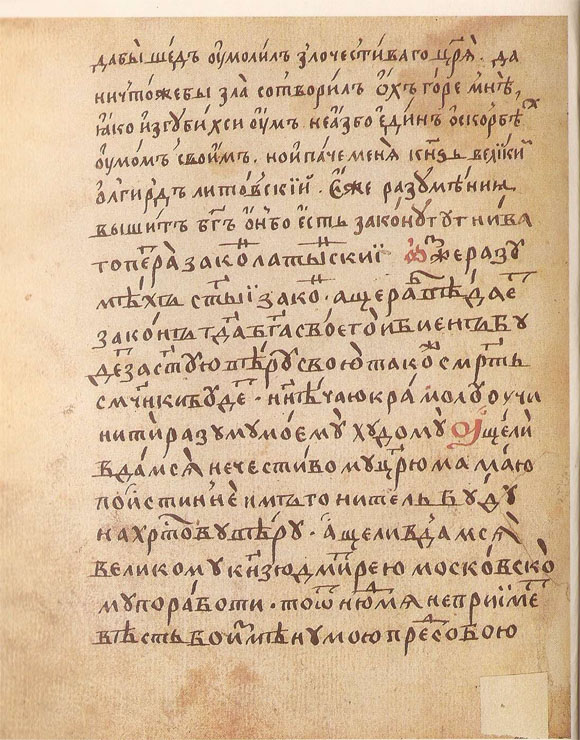 дабы шедъ оумолилъ злочестиваго цр҃ѧ. да
ничтожебы зла сотворилъ ѡ҆хъ горе мнѣ,
ꙗко изгубихси оумъ неазбо единъ оскорбѣх
оумомъ своимъ. нои паче менѧ кн҃зь великии
олгирдъ литовскїй. еже разумѣнию
вышитъ бг҃ъ онбо есть законутугнива
топера зако латыскиї аꙁже разу
мѣхъ ст҃ыї зако. аще рать вѣдае
законъ тда бг҃а своего и биенъ бу
де за ст҃ую вѣру свою тако смр҃ть
см҃чнки буде. нн҃ѣ чаю крамолу оучи
нити разуму моему худому ѡ҆ще ли
вдамсѧ нечестивому цр҃ю мамаю
поистиннѣ имъ гонитель буду
на хр҃тову вѣру. аще ли вдамсѧ
великому кн҃зю дмирею московско
му поработи. то ѿнюⷣ мѧ неприїме
вѣсть бо измѣну мою преⷣ собою